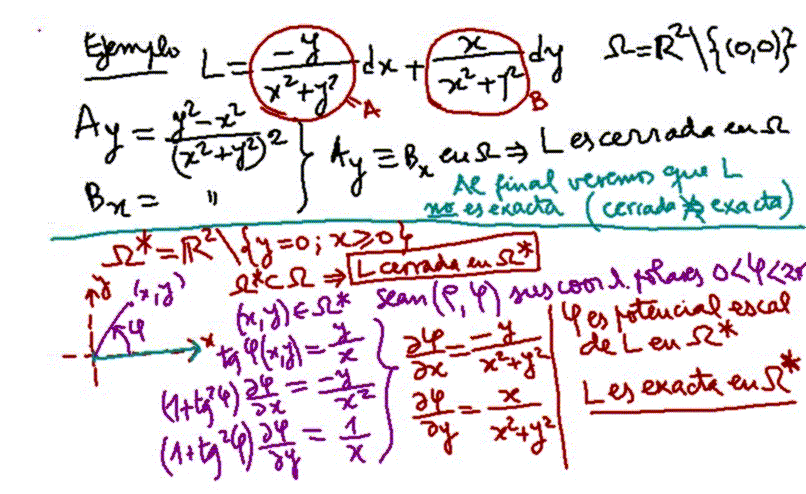 Ejemplo L = -y/(x²+y²) dx + x/(x²+y²) dy Ω = ℝ² \ {(0,0)}
A B
A_y = (y²-x²)/(x²+y²)² } A_y ≡ B_x en Ω ⇒ L es cerrada en Ω
B_x = "
Al final veremos que L
no es exacta (cerrada ⇏ exacta)
Ω* = ℝ² \ {y=0; x≥0}
Ω* ⊂ Ω ⇒ L cerrada en Ω*
(x,y) ∈ Ω* sean (ρ, φ) sus coord. polares 0<φ<2π
y (x,y) φ x
tg φ(x,y) = y/x
(1+tg²φ) ∂φ/∂x = -y/x²
(1+tg²φ) ∂φ/∂y = 1/x
∂φ/∂x = -y/(x²+y²)
∂φ/∂y = x/(x²+y²)
φ es potencial escal
de L en Ω*
L es exacta en Ω*